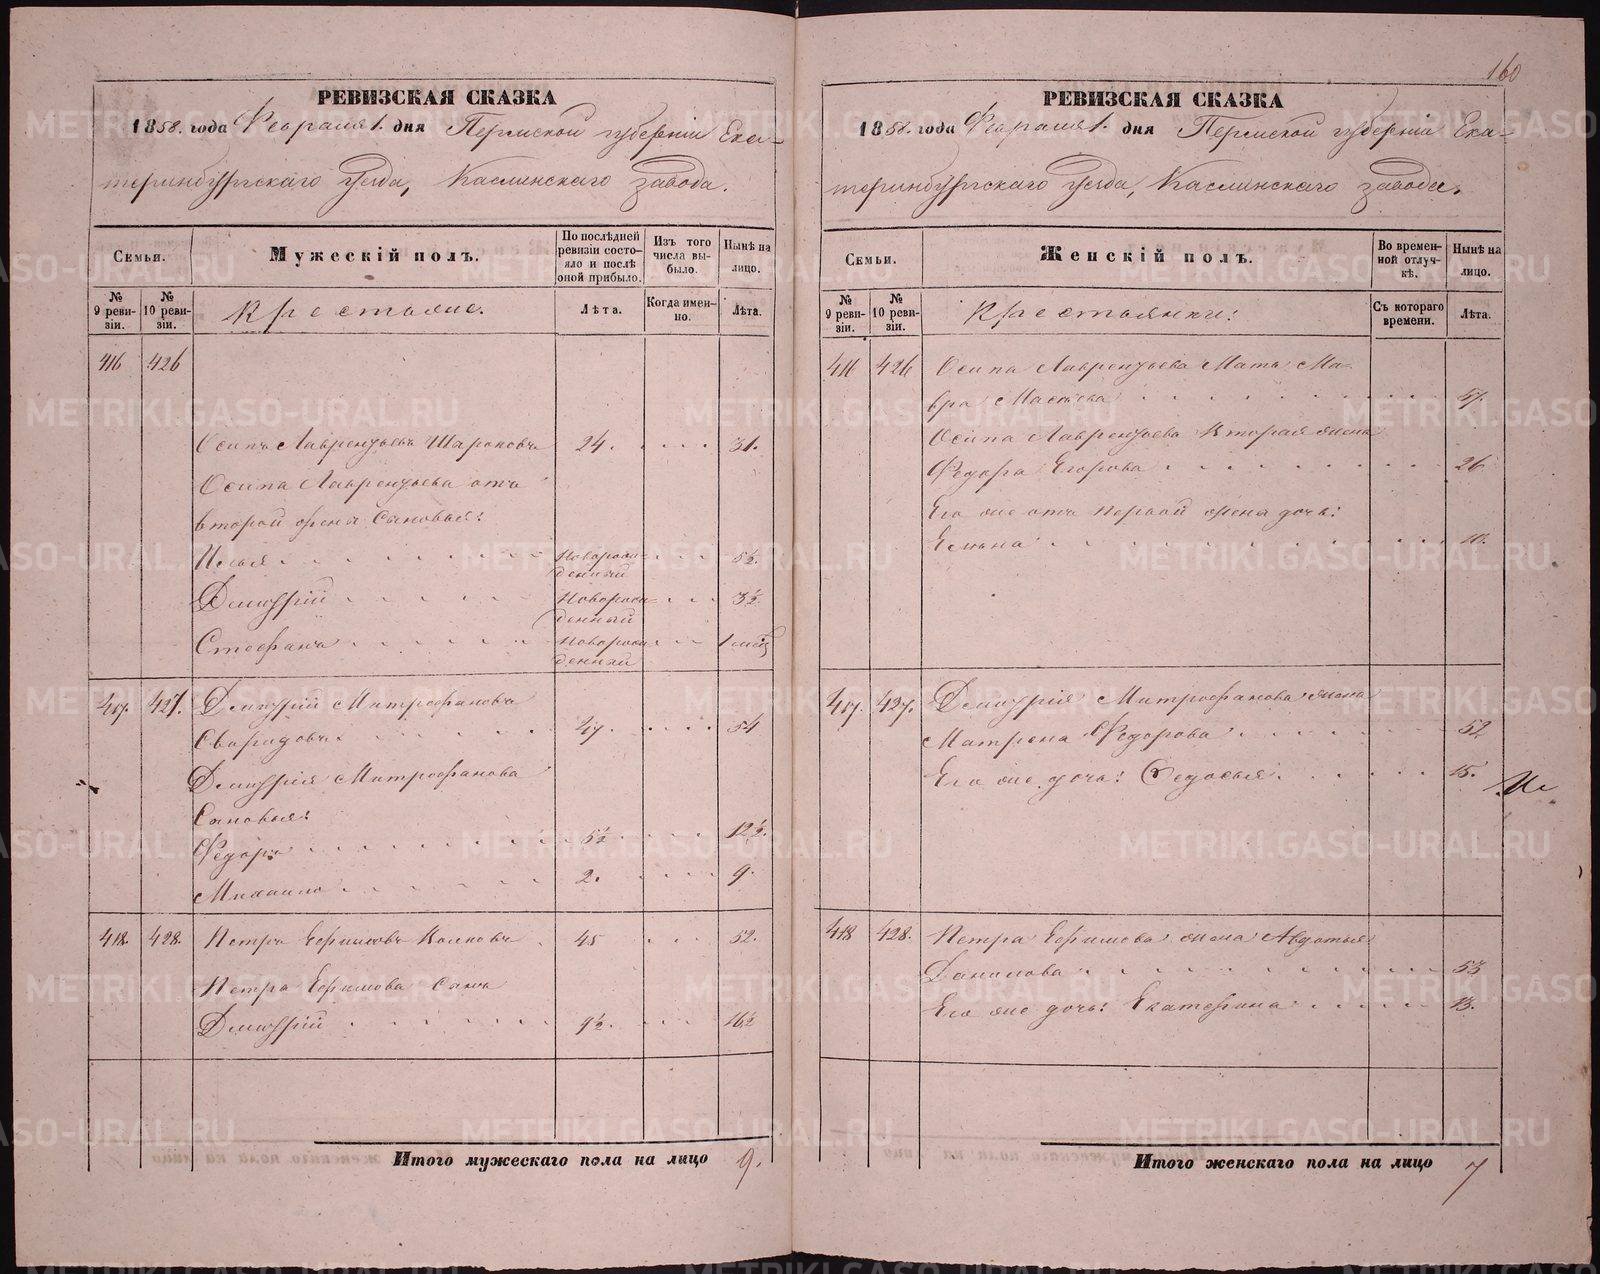 160
РЕВИЗСКАЯ СКАЗКА
1858. года Февраля 1. дня Пермской губерніи Ека-
теринбургскаго уезда, Каслинскаго завода.
Семьи.
Мужескій полъ.
По послѣдней ревизіи состояло и послѣ оной прибыло.
Изъ того числа выбыло.
Нынѣ на лицо.
№ 9 ревизіи.
№ 10 ревизіи.
Крестьяне.
Лѣта.
Когда именно.
Лѣта.
416 426
Осипъ Лаврентьевъ 24. 31.
Осипа Лаврентьева отъ
второй жены Сыновья:
Илья Новорожденный 5½.
Дмитрій Новорожденный 3½.
Стефанъ Новорожденный 1 мѣс
417. 427. Дмитрій Митрофановъ
47. 54
Дмитрія Митрофанова
Сыновья:
Федоръ 5½ 12½.
Михаило 2. 9.
418. 428. Петръ Ефимовъ 45 52.
Петра Ефимова Сынъ
Дмитрій 9½. 16½
Итого мужескаго пола на лицо 9.
РЕВИЗСКАЯ СКАЗКА
1858. года Февраля 1. дня Пермской губерніи Ека-
теринбургскаго уезда, Каслинскаго завода.
Семьи.
Женскій полъ.
Во временной отлучкѣ.
Нынѣ на лицо.
№ 9 ревизіи.
№ 10 ревизіи.
Крестьянки:
Съ котораго времени.
Лѣта.
416 426 Осипа Лаврентьева Мать Ма-
вра 57.
Осипа Лаврентьева вторая жена
Федора Егорова 26
Его же отъ первой жены дочь:
Елена
417. 427. Дмитрія Митрофанова жена
Матрена Федорова 52
Его же дочь: Федосья. 15.
418 428. Петра Ефимова жена Авдотья
Данилова 53
Его же дочь: Екатерина 13.
Итого женскаго пола на лицо 7
METRIKI.GASO-URAL.RU